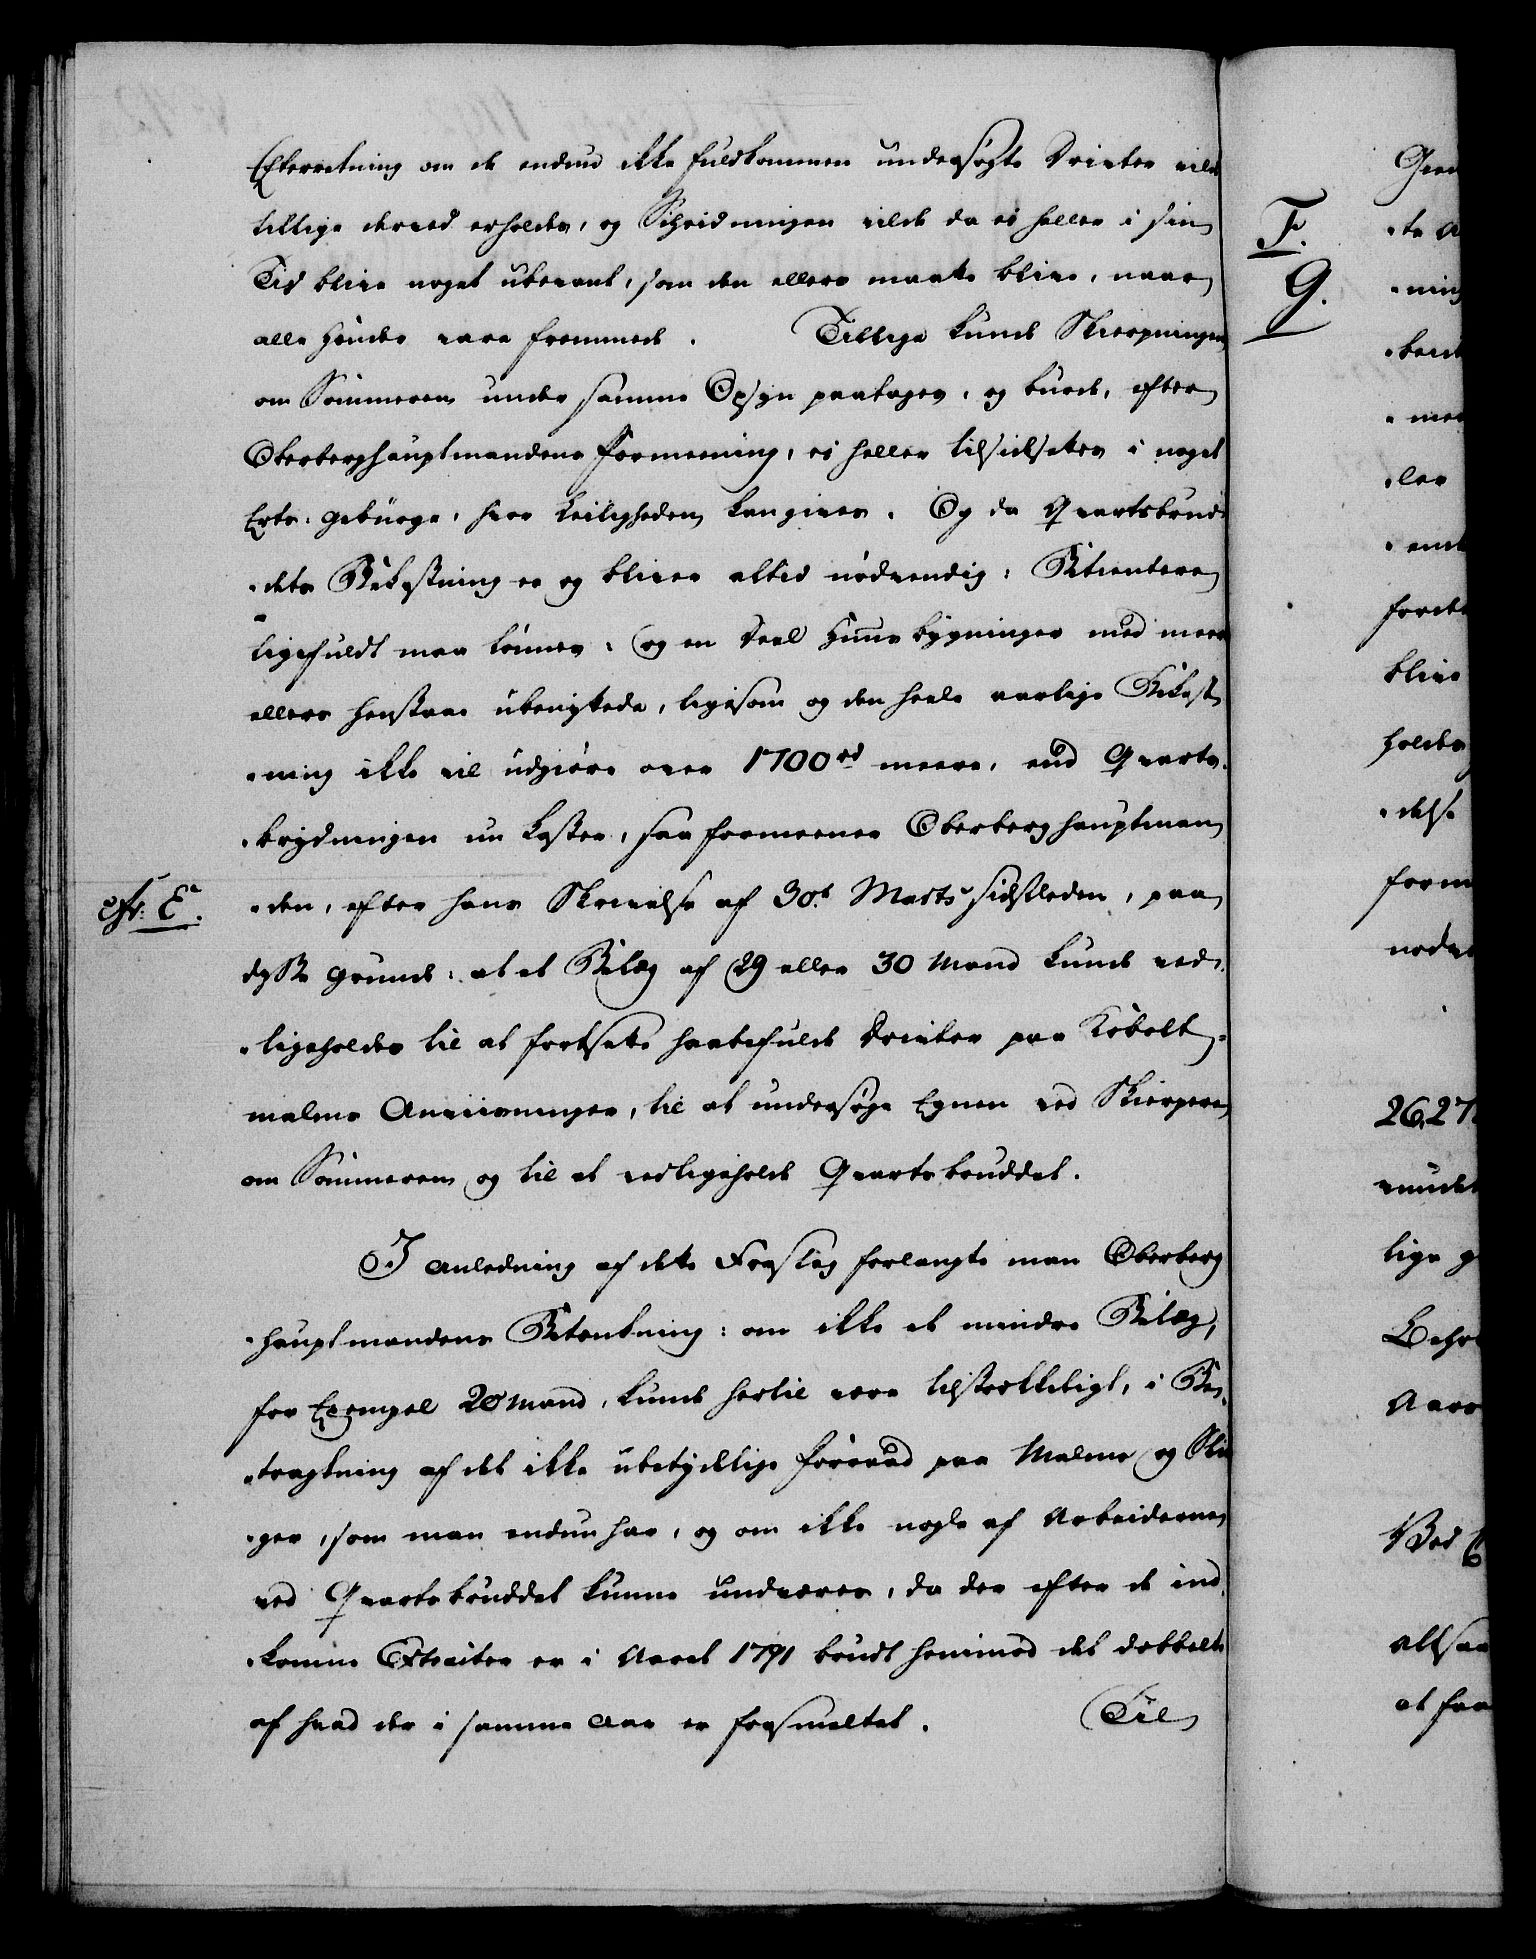 Efterretning om de endnu ikke fuldkommen undersøgte Drivter vilde
tillige derved erholdes, og Scheidningen vilde da ei heller i sin
Tid blive noget ubevant, som den ellers maatte blive, naar
alle Hænder vare fremmede. Tillige kunde Skierpningen
om Sommeren under samme Opsyn paatages, og burde, efter
Oberberghauptmandens Formeening, ei heller tilsidsettes i noget
Erts-Gebürge, hvor Leiligheden kan gives. Og da Qvartsbrud-
dets Bekostning er og bliver altid nødvendig: Betientere
ligefuldt maa lønnes: og en Deel Huus bygninger med meere
ellers henstaae ubenyttede, ligesom og den heele aarlige Bekost
ning ikke vil udgiøre over 1700 rd meere, end Qvarts-
brydningen nu koster, saa formeener Oberberghauptman
den, efter hans Skrivelse af 30.t Marts sidstleden, paa
cfr: E.
disse Grunde: at et Belæg af 29 eller 30 Mand kunde ved-
ligeholdes til at fortsætte haabefulde Drivter paa Kobolt-
malms Anviisninger, til at undersøge Egnen ved Skierpere
om Sommeren og til at vedligeholde Qvartsbruddet.
I Anledning af dette Forslag forlangte man Oberberg
hauptmandens Betænkning: om ikke et mindre Belæg,
for Exempel 20 Mand, kunde hertil være tilstrækkeligt, i Be-
tragtning af det ikke ubetydelige Forraad paa Malme og Sli
ger, som man endnu har, og om ikke nogle af Arbeiderne
ved Qvartsbruddet kunne undværes, da der efter de ind
komne Extracter er i Aaret 1791 brudt henimod det dobbelte
af hvad der i samme Aar er forsmeltet. Til
F.
G.
ning
blive
holdes
26, 27
lige
Aars
Ved
altsaa
at faa